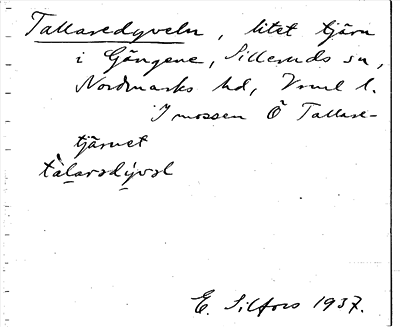 Tallaredyveln, litet tjärn
i Gängene, Silleruds sn,
Nordmarks hd, Vrml l.
I mossen Ö Tallare-
tjärnet
E. Silfors 1937.